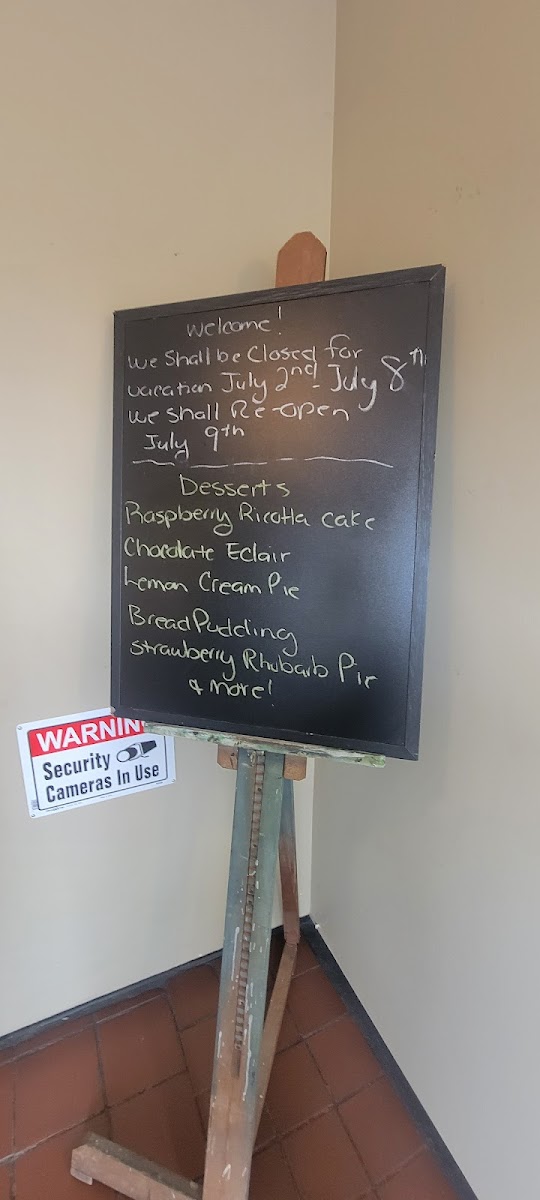 Welcome!
We Shall be Closed for
vacation July 2nd - July 8th
We shall Re-open
July 9th
Desserts
Raspberry Ricotta cake
Chocolate Eclair
Lemon Cream Pie
Bread Pudding
Strawberry Rhubarb Pie
& More!
WARNIN
Security
Cameras In Use